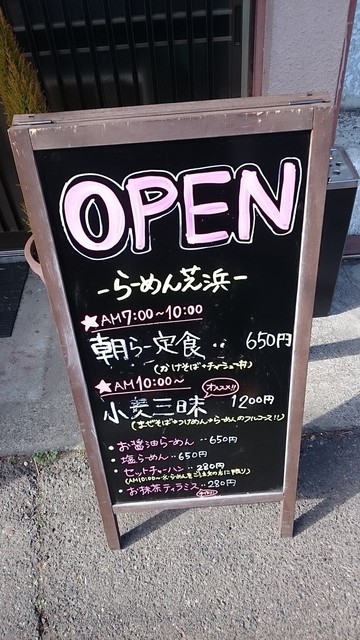 OPEN
-らーめん芝浜-
★AM7:00~10:00
朝らー定食‥ 650円
(かけそば+チャーシュー丼)
★AM10:00~
オススメ!!
小麦三昧 1200円
(まぜそば→つけめん→らーめんのフルコース!!)
・お醤油らーめん‥650円
・塩らーめん‥650円
・セットチャーハン‥280円
(AM10:00~らーめんをご注文の方に限り)
・お抹茶ティラミス‥280円